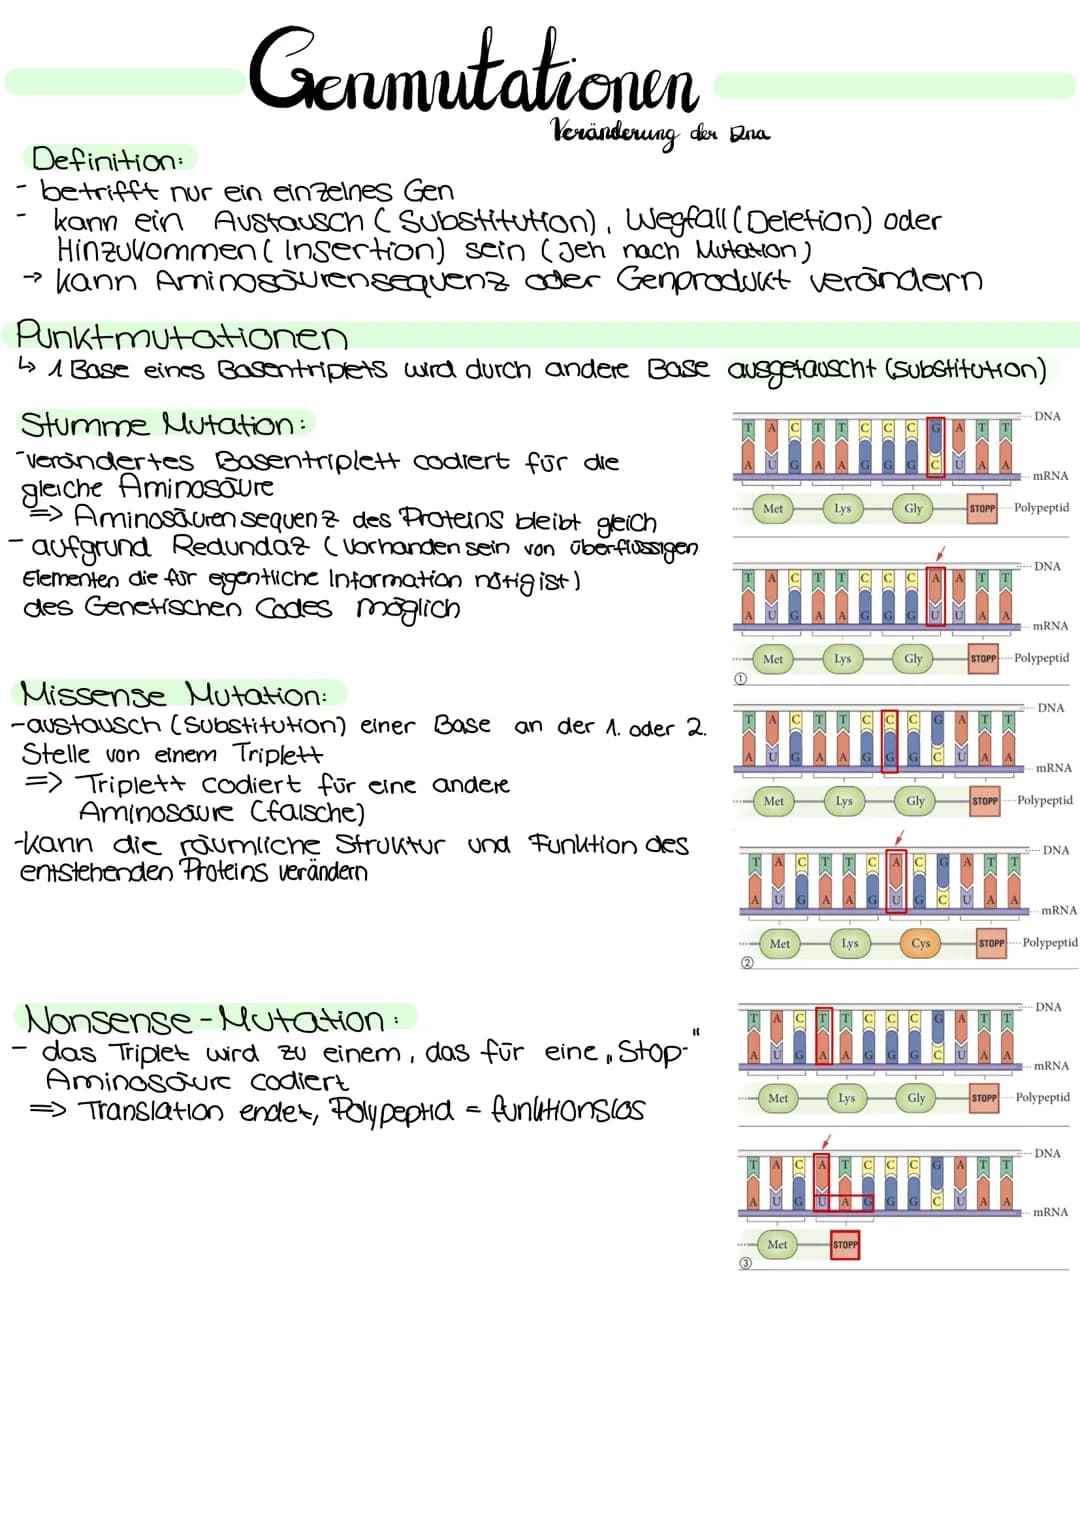 Genmutationen
Veränderung der Dna
Definition:
- betrifft nur ein einzelnes Gen
- kann ein Austausch (Substitution), Wegfall (Deletion) oder
Hinzukommen (Insertion) sein (jeh nach Mutation)
→ kann Aminosäurensequenz oder Genprodukt verändern
Punktmutationen
↳ 1 Base eines Basentriplets wird durch andere Base ausgetauscht (Substitution)
Stumme Mutation:
-verändertes Basentriplett codiert für die
gleiche Aminosäure
=> Aminosäurensequenz des Proteins bleibt gleich
- aufgrund Redundaz (Vorhandensein von überflüssigen
Elementen die für egentliche Information nötig ist)
des Genetischen Codes möglich
T A C T T C C C G A T T DNA
A U G A A G G G C U A A mRNA
Met Lys Gly STOPP Polypeptid
T A C T T C C C A A T T DNA
A U G A A G G G U U A A mRNA
Met Lys Gly STOPP Polypeptid
①
Missense Mutation:
-austausch (Substitution) einer Base an der 1. oder 2.
Stelle von einem Triplett
=> Triplett codiert für eine andere
Aminosäure (falsche)
-kann die räumliche Struktur und Funktion des
entstehenden Proteins verändern
T A C T T C C C G A T T DNA
A U G A A G G G C U A A mRNA
Met Lys Gly STOPP Polypeptid
T A C T T C A C G A T T DNA
A U G A A G U G C U A A mRNA
Met Lys Cys STOPP Polypeptid
②
Nonsense-Mutation:
- das Triplet wird zu einem, das für eine „Stop-"
Aminosäure codiert
=> Translation endet, Polypeptid = funktionslos
T A C T T C C C G A T T DNA
A U G A A G G G C U A A mRNA
Met Lys Gly STOPP Polypeptid
T A C A T C C C G A T T DNA
A U G U A G G G C U A A mRNA
Met STOPP
③